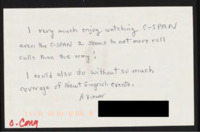 I very much enjoy watching C-SPAN
even tho CSPAN 2 seems to get more roll
calls than the way!
I could also do without so much
coverage of Newt Gingrich events.
A Viewer
C. Cong